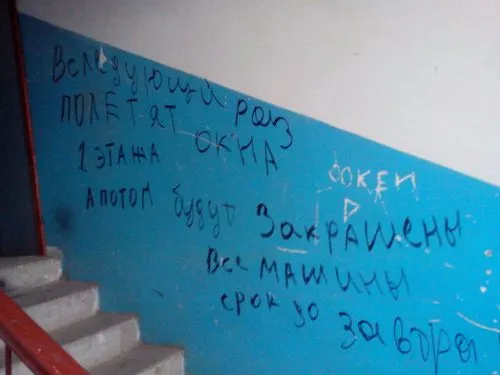 Вследующий раз
ПОЛЕТЯТ ОКНА
1 ЭТАЖА
А ПОТОМ будут Закрашены
Все МАШИНЫ
срок до Завтра
ОКЕЙ